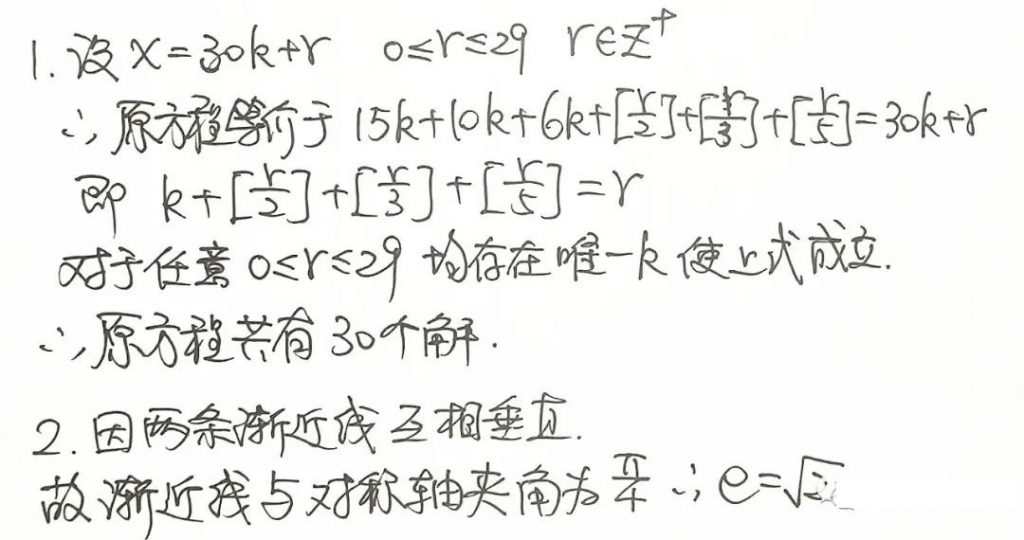 1. 设 x=30k+r 0≤r≤29 r∈Z⁺
∴ 原方程等价于 15k+10k+6k+[r/2]+[r/3]+[r/5]=30k+r
即 k+[r/2]+[r/3]+[r/5]=r
对于任意 0≤r≤29 均存在唯一k 使上式成立.
∴ 原方程共有30个解.
2. 因两条渐近线互相垂直.
故渐近线与对称轴夹角为 π/4 ∴ e=√2